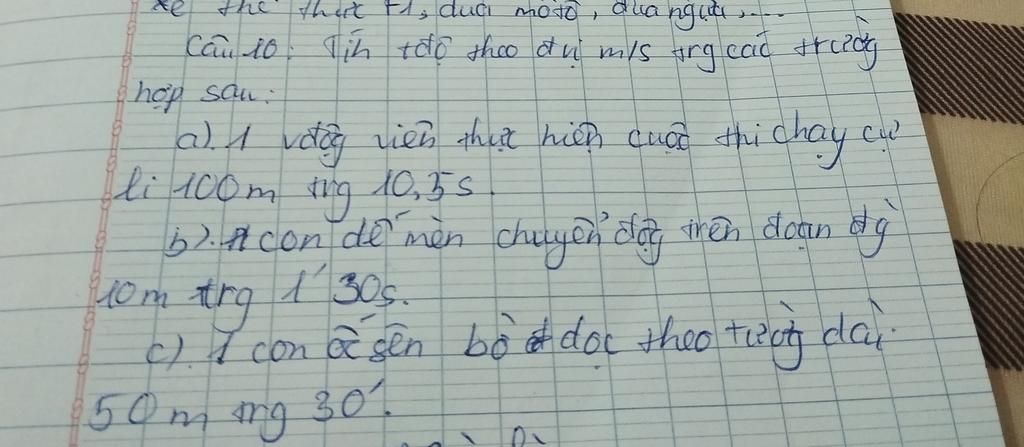 xe thể thức F1, đua môtô, đua người,....
Câu 10: Tíh tđộ theo đvị m/s trg các trườg
hợp sau:
a). 1 vđộg viên thực hiện cuộc thi chạy cự
li 100m trg 10,5s.
b). 1 con dế mèn chuyển độg trên đoạn đg̀
10m trg 1' 30s.
c). 1 con ốc sên bò dọc theo tườg dài
50m trg 30'.